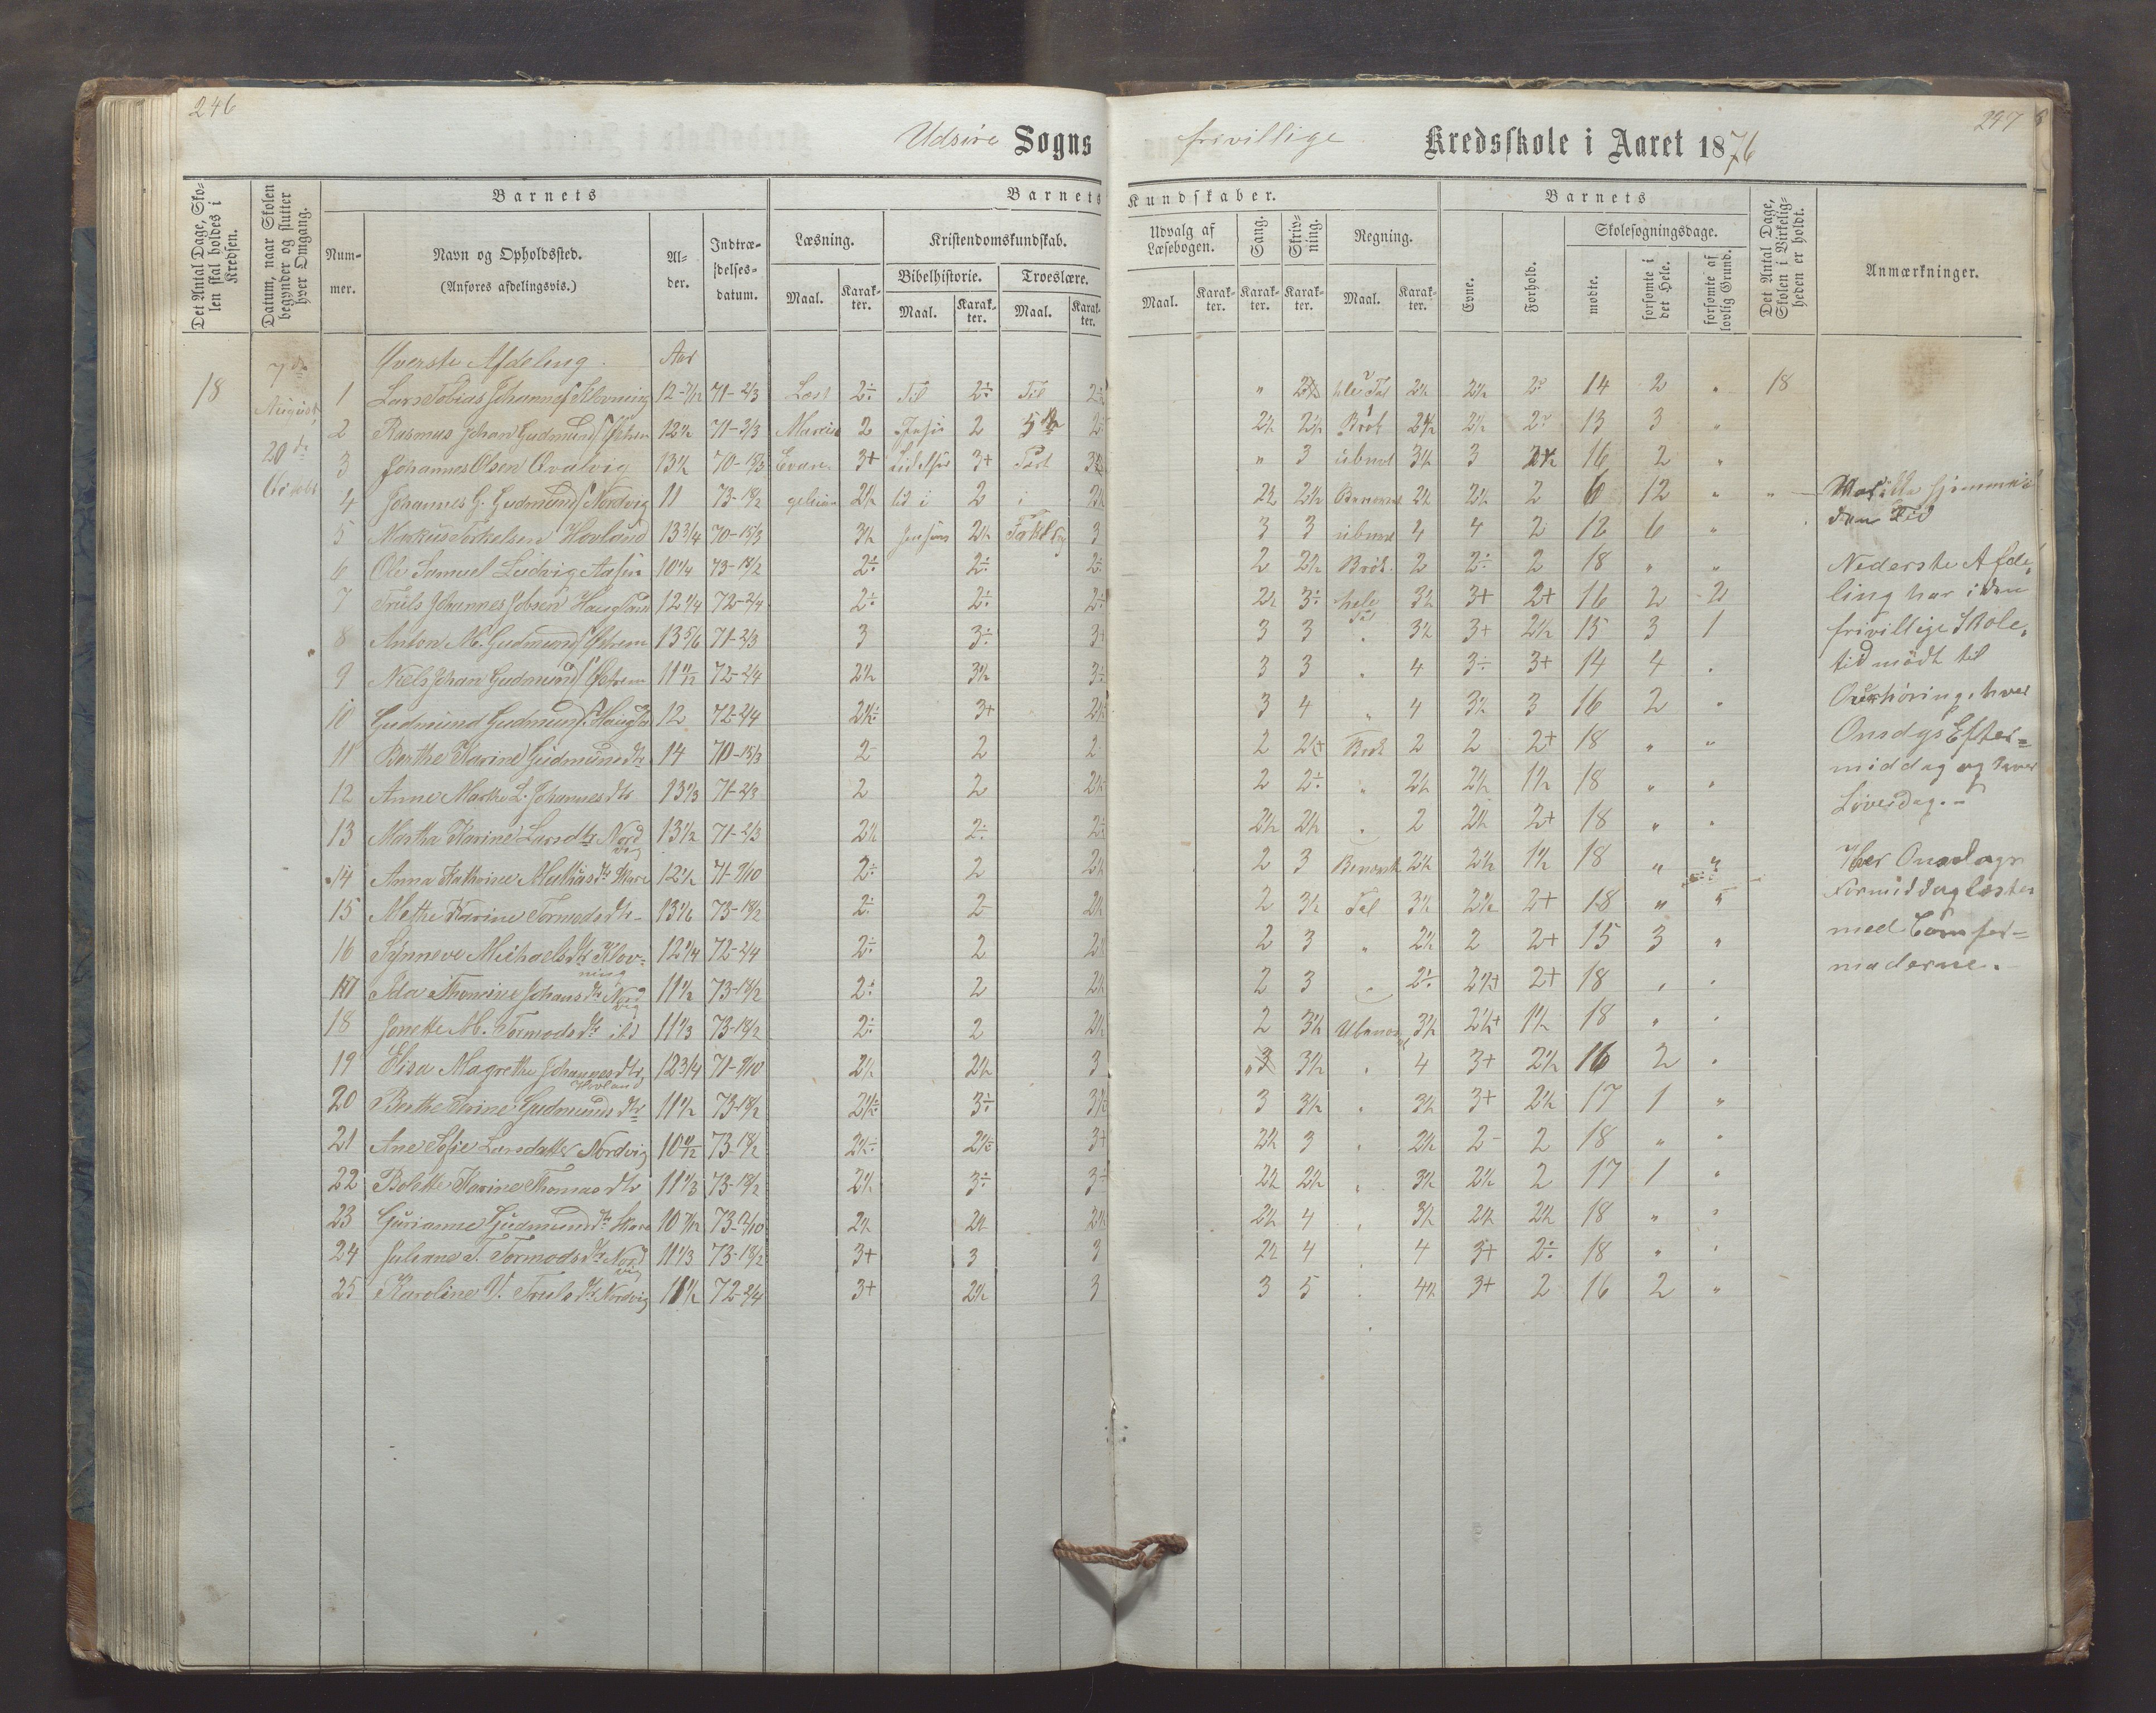 246
247
Udsire Sogns frivillige Kredsskole i Aaret 1876
Det Antal Dage, Skolen skal holdes i Kredsen.
Datum, naar Skolen begynder og slutter hver Omgang.
Barnets
Num-mer.
Navn og Opholdssted.
(Anføres afdelingsvis.)
Al-der.
Indtræ-delses-datum.
Barnets Kundskaber.
Læsning.
Maal. Karak-ter.
Kristendomskundskab.
Bibelhistorie. Troeslære.
Maal. Karak-ter. Maal. Karak-ter.
Udvalg af Læsebogen.
Maal. Karak-ter.
Sang. Karak-ter.
Skriv-ning. Karak-ter.
Regning.
Maal. Karak-ter.
Barnets
Evne.
Forhold.
Skolesøgningsdage.
mødte.
forsømte i det Hele.
forsømte af lovlig Grund.
Det Antal Dage, Skolen i Virkelig-heden er holdt.
Anmærkninger.
Øverste Afdeling. Aar
18 7de August 1 Lars Tobias Johannes Klovning 12-7/12 71-2/3 Læst 2÷ Til 2÷ Til 2÷ " hele Tal 2½ 2½ 14 2 " 18
2 Rasmus Johan Gudmunds 12½ 71-2/3 2 2 2½ 2½ Brøk 2½ 2½ 13 3 "
20de 3 Johannes Olsen Qvalvig 13½ Evan 3+ 3+ " 3 ubnvt 3½ 3 16 2 "
4 Johannes G. Gudmunds Nordvig 11 73-18/2 geliün 2½ tid i 2 i 2½ 2½ 2½ Benævnt 2½ 2½ 2 6 12 "
5 Markus Torkelsen Hovland 13 3/4 70-15/3 3½ 2½ 3 3 3 ubnvt 4 4 2 12 6 "
6 Ole Samuel Ludvig Aasen 10¼ 73-18/2 2÷ 2÷ 2÷ 2 2½ Brøk 2 2÷ 2 18 " "
7 Truls Johannes Jobsen 12¼ 72-2/4 2÷ 2÷ 2÷ 2½ 3÷ hele Tal 3½ 3+ 2+ 16 2 2
8 Anton M. Gudmunds 13 5/6 71-2/3 3 3÷ 3+ 3 3 " 3½ 3+ 2½ 15 3 1
9 Niels Johan Gudmunds 11 11/12 72-2/4 2½ 3½ 3÷ 3 3 " 4 3÷ 3+ 14 4 "
10 Gudmund Gudmunds 12 72-2/4 2½÷ 3+ 2½ 3 4 " 4 3½ 3 16 2 "
11 Berthe Karine Gudmunds dtr 14 70-15/3 2 2 2 2 2½+ Brøk 2 2 2+ 18 " "
12 Anne Marthe L. Johannes dtr 13⅓ 71-2/3 2 2 2½ 2 2÷ " 2½ 2½ 1½ 18 " "
13 Martha Karine Lars dtr Nordvig 13½ 71-2/3 2½ 2÷ 2÷ 2½ 2½ " 2 2½ 2+ 18 " "
14 Anna Kathrine Mathias dtr Skare 12½ 71-9/10 2÷ 2 2½ 2 3 Benævnt 2½ 2½ 1½ 18 " "
15 Methe Karine Tormods dtr 13 1/6 73-18/2 2÷ 2 2½ 2 3½ Tal 3½ 2½ 2+ 18 " "
16 Synneve Michaels dtr Klovning 12¼ 72-2/4 2÷ 2 2½ 2 3 " 2½ 2 2+ 15 3 "
17 Ida Thomine Johans dtr Nordvig 11½ 73-18/2 2÷ 2 2½ 2 3 " 2÷ 2½+ 2+ 18 " "
18 Jonette M. Tormods dtr ibd 11⅓ 73-18/2 2÷ 2 2½ 2 3½ 3½ 2½+ 1½ 18 " "
19 Elisa Magrethe Johannes dtr Hovland 12 3/4 71-9/10 2½ 2½ 3 3 3½ " 4 3+ 2½ 16 2 "
20 Berthe Serine Gudmunds dtr 11½ 73-18/2 2½÷ 3÷ 3½ 3 3½ " 3½ 3+ 2½ 17 1 "
21 Ane Sofie Larsdatter Nordvig 10 11/12 73-18/2 2½÷ 2½÷ 3+ 2½ 3 " 2½ 2- 2 18 " "
22 Bolette Karine Thomas dtr 11⅓ 73-18/2 2½ 3÷ 3÷ 2½ 2½ " 3½ 2½ 2 17 1 "
23 Gurianne Gudmund dtr Skare 10 7/12 2½ 2½ 2½ 2½ 4 " 3½ 2½ 2½ 18 " "
24 Juliane T. Tormods dtr Nordvig 11⅓ 73-18/2 3+ 3 3 2½ 4 " 4 3+ 2÷ 18 " "
25 Karoline V. Truls dtr Nordvig 11½ 72-2/4 3+ 2½ 3 3 5 " 4½ 3+ 2 16 2 "
den Tid
Nederste Afde-
ling har i den
frivillige Skole-
tid mødt til
Overhøring hver
Onsdags Efter-
middag og hver
Løverdag.-
Hver Onsdags
Formiddag læstes
med Comfir-
maderne.